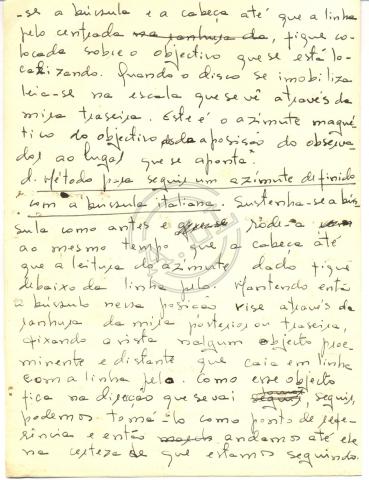 -se a bússula e a cabeça até que a linha
pelo centrada na ranhura da, fique co-
locada sobre o objectivo que se está lo-
calizando. Quando o disco se imobiliza
leia-se na escala que se vê através da
mira traseira. Este é o azimute magné-
tico do objectivo da posição do observa-
dor ao lugar que se aponta.
d. Método para seguir um azimute definido
com a bússula italiana. Sustenha-se a bús
sula como antes e rode-a
ao mesmo tempo que a cabeça até
que a leitura do azimute dado fique
debaixo da linha pelo. Mantendo então
a bússula nessa posição vise através da
ranhura da mira posterior ou traseira,
fixando a vista nalgum objecto proe-
minente e distante que caia em linha
com a linha pelo. Como esse objecto
fica na direcção que se vai seguir,
podemos tomá-lo como ponto de refe-
rência e então andamos até ele
na certeza de que estamos seguindo